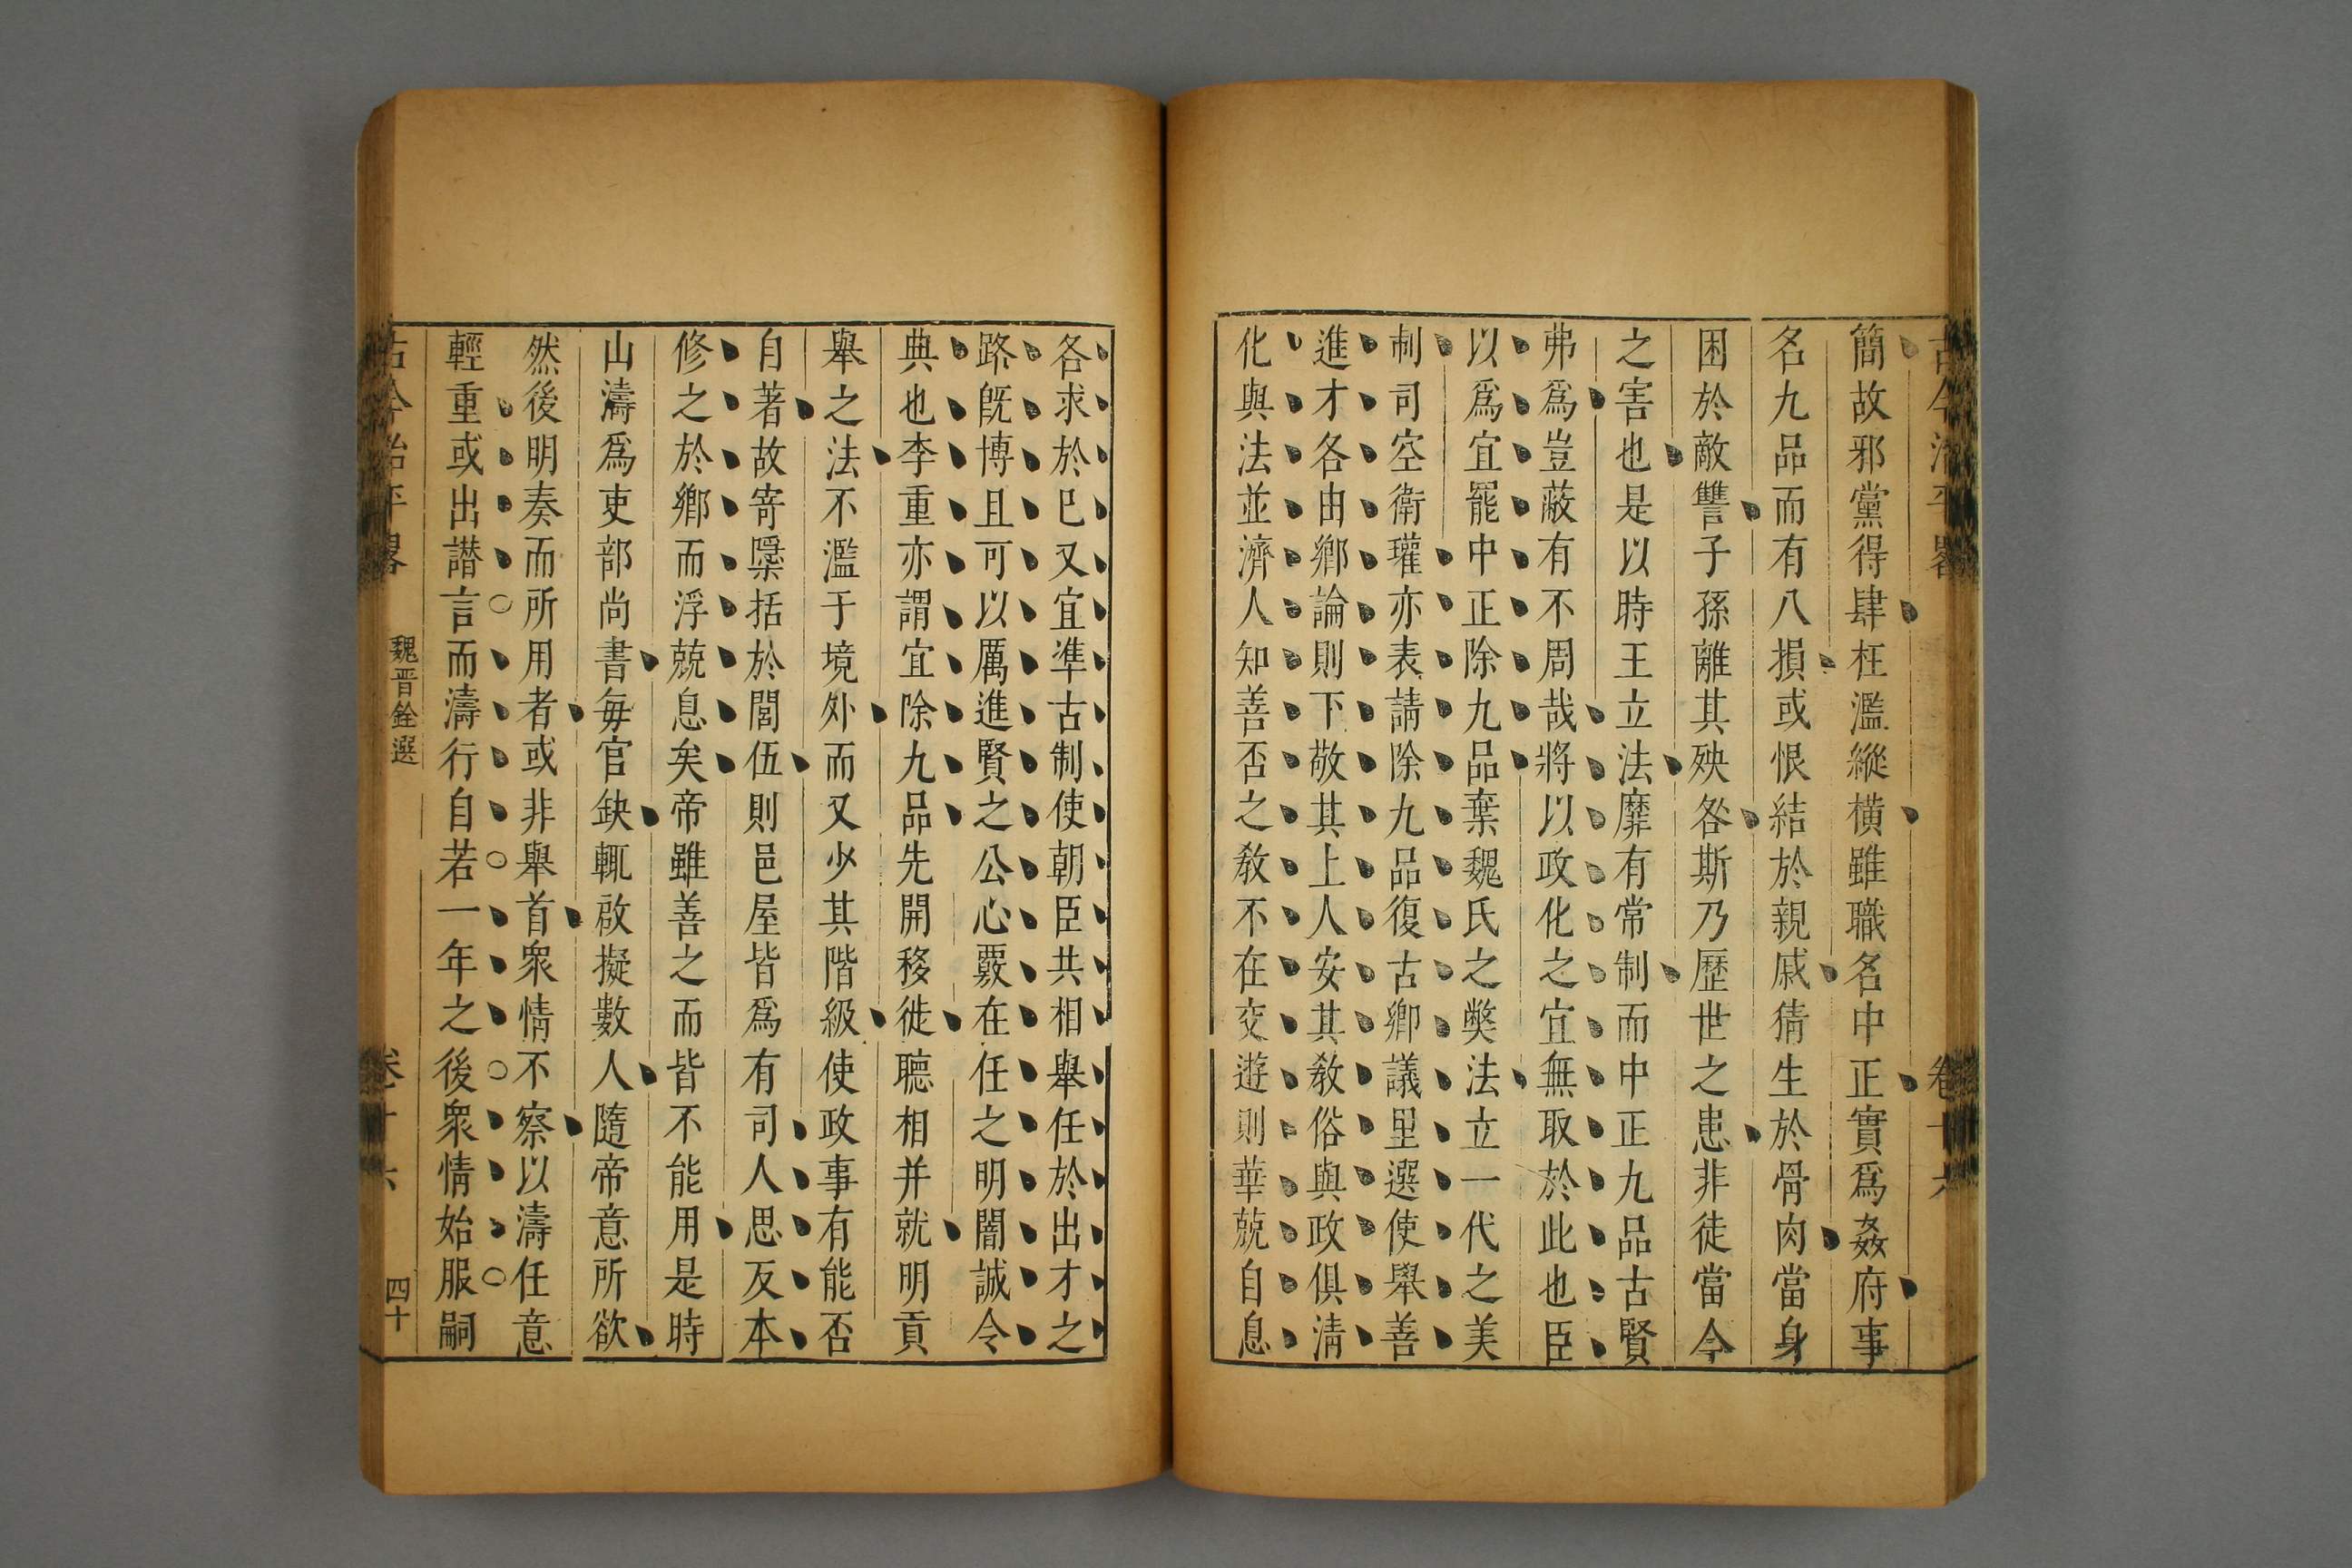 簡故邪黨得肆枉濫縱橫雖職名中正實爲姦府事
名九品而有八損或恨結於親戚猜生於骨肉當身
困於敵讐子孫離其殃咎斯乃歷世之患非徒當今
之害也是以時王立法靡有常制而中正九品古賢
弗爲豈蔽有不周哉將以政化之宜無取於此也臣
以爲宜罷中正除九品棄魏氏之獘法立一代之美
制司空衛瓘亦表請除九品復古鄉議里選使舉善
進才各由鄉論則下敬其上人安其敎俗與政俱淸
化與法並濟人知善否之敎不在交遊則華兢自息
各求於已又宜準古制使朝臣共相舉任於出才之
路旣博且可以厲進賢之公心覈在任之明闇誠令
典也李重亦謂宜除九品先開移徙聽相并就明貢
舉之法不濫于境外而又少其階級使政事有能否
自著故寄檃括於閭伍則邑屋皆爲有司人思反本
修之於鄉而浮兢息矣帝雖善之而皆不能用是時
山濤爲吏部尚書每官缺輒啟擬數人隨帝意所欲
然後明奏而所用者或非舉首衆情不察以濤任意
輕重或出譖言而濤行自若一年之後衆情始服嗣
古今治平畧
魏晋銓選
卷十六
四十